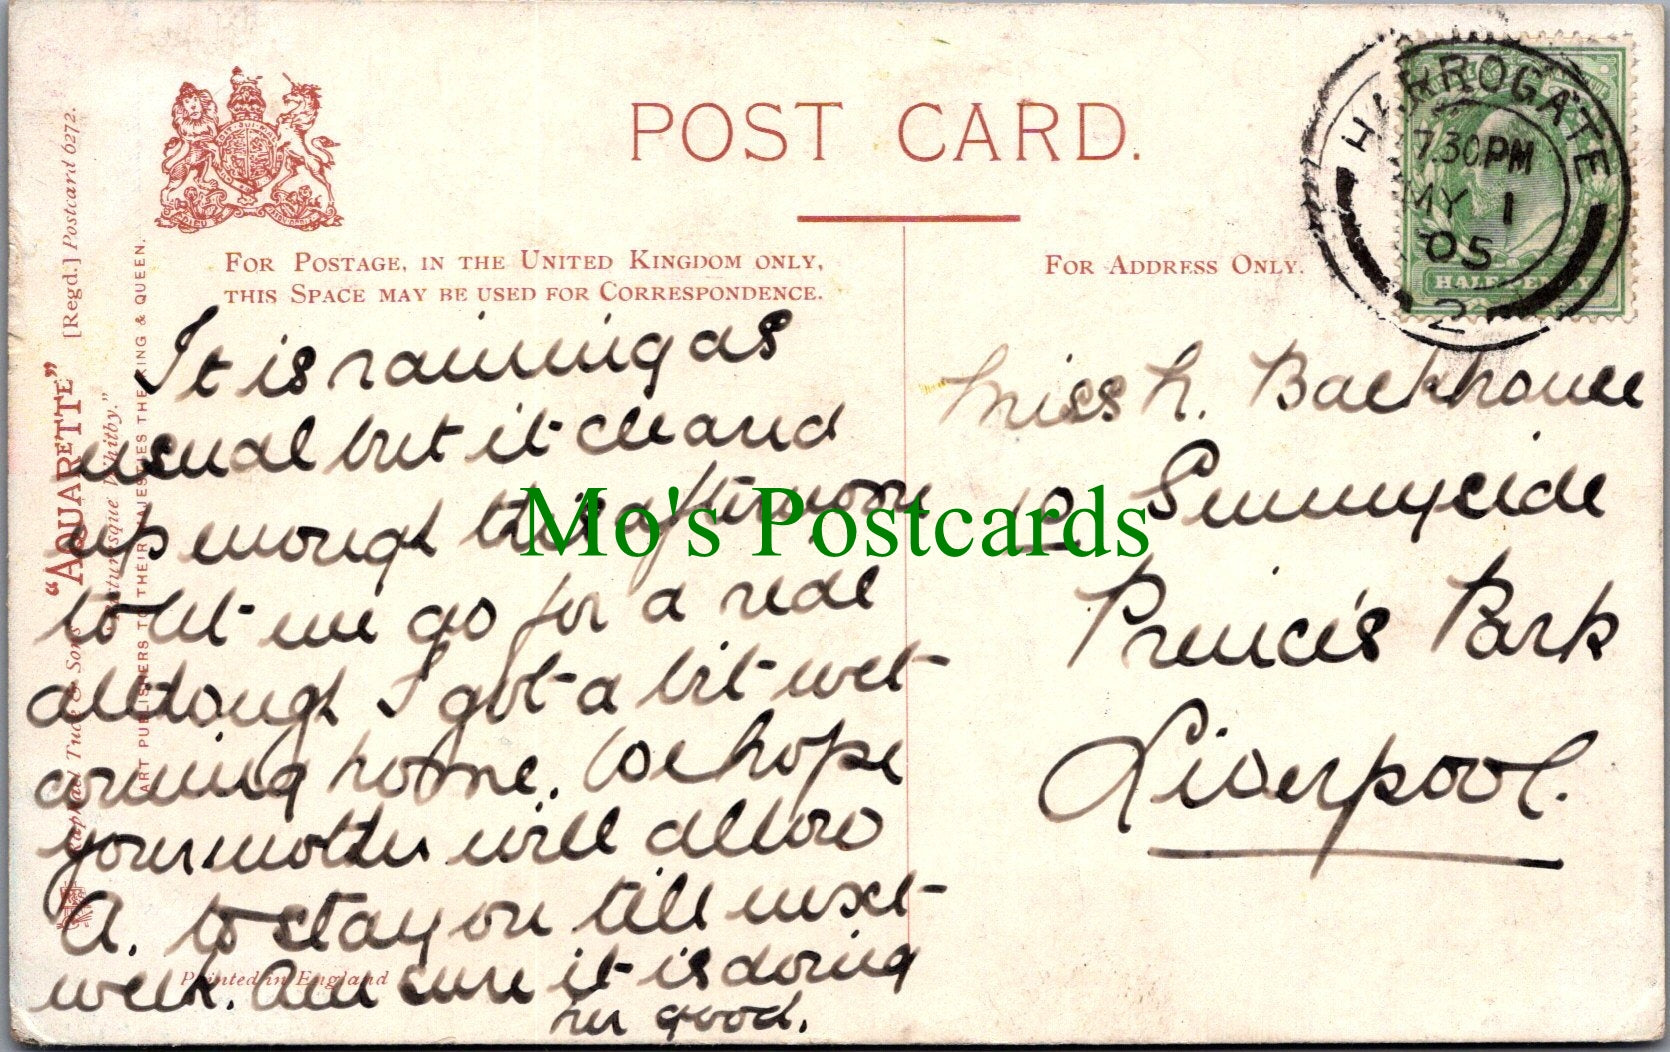 POST CARD.
FOR POSTAGE, IN THE UNITED KINGDOM ONLY,
THIS SPACE MAY BE USED FOR CORRESPONDENCE.
FOR ADDRESS ONLY.
HARROGATE
7.30PM
MY 1
05
2
HALFPENNY
"AQUARETTE" [Regd.] Postcard 6272.
Raphael Tuck & Sons' "Picturesque Whitby."
ART PUBLISHERS TO THEIR MAJESTIES THE KING & QUEEN.
It is raining as
usual but it cleared
up enough this afternoon
to let me go for a ride
although I got a bit wet
coming home. We hope
your mother will allow
A. to stay on till next
week. Am sure it is doing
her good.
Printed in England
Miss h. Backhouse
10 Sunnyside
Prince's Park
Liverpool.
Mo's Postcards